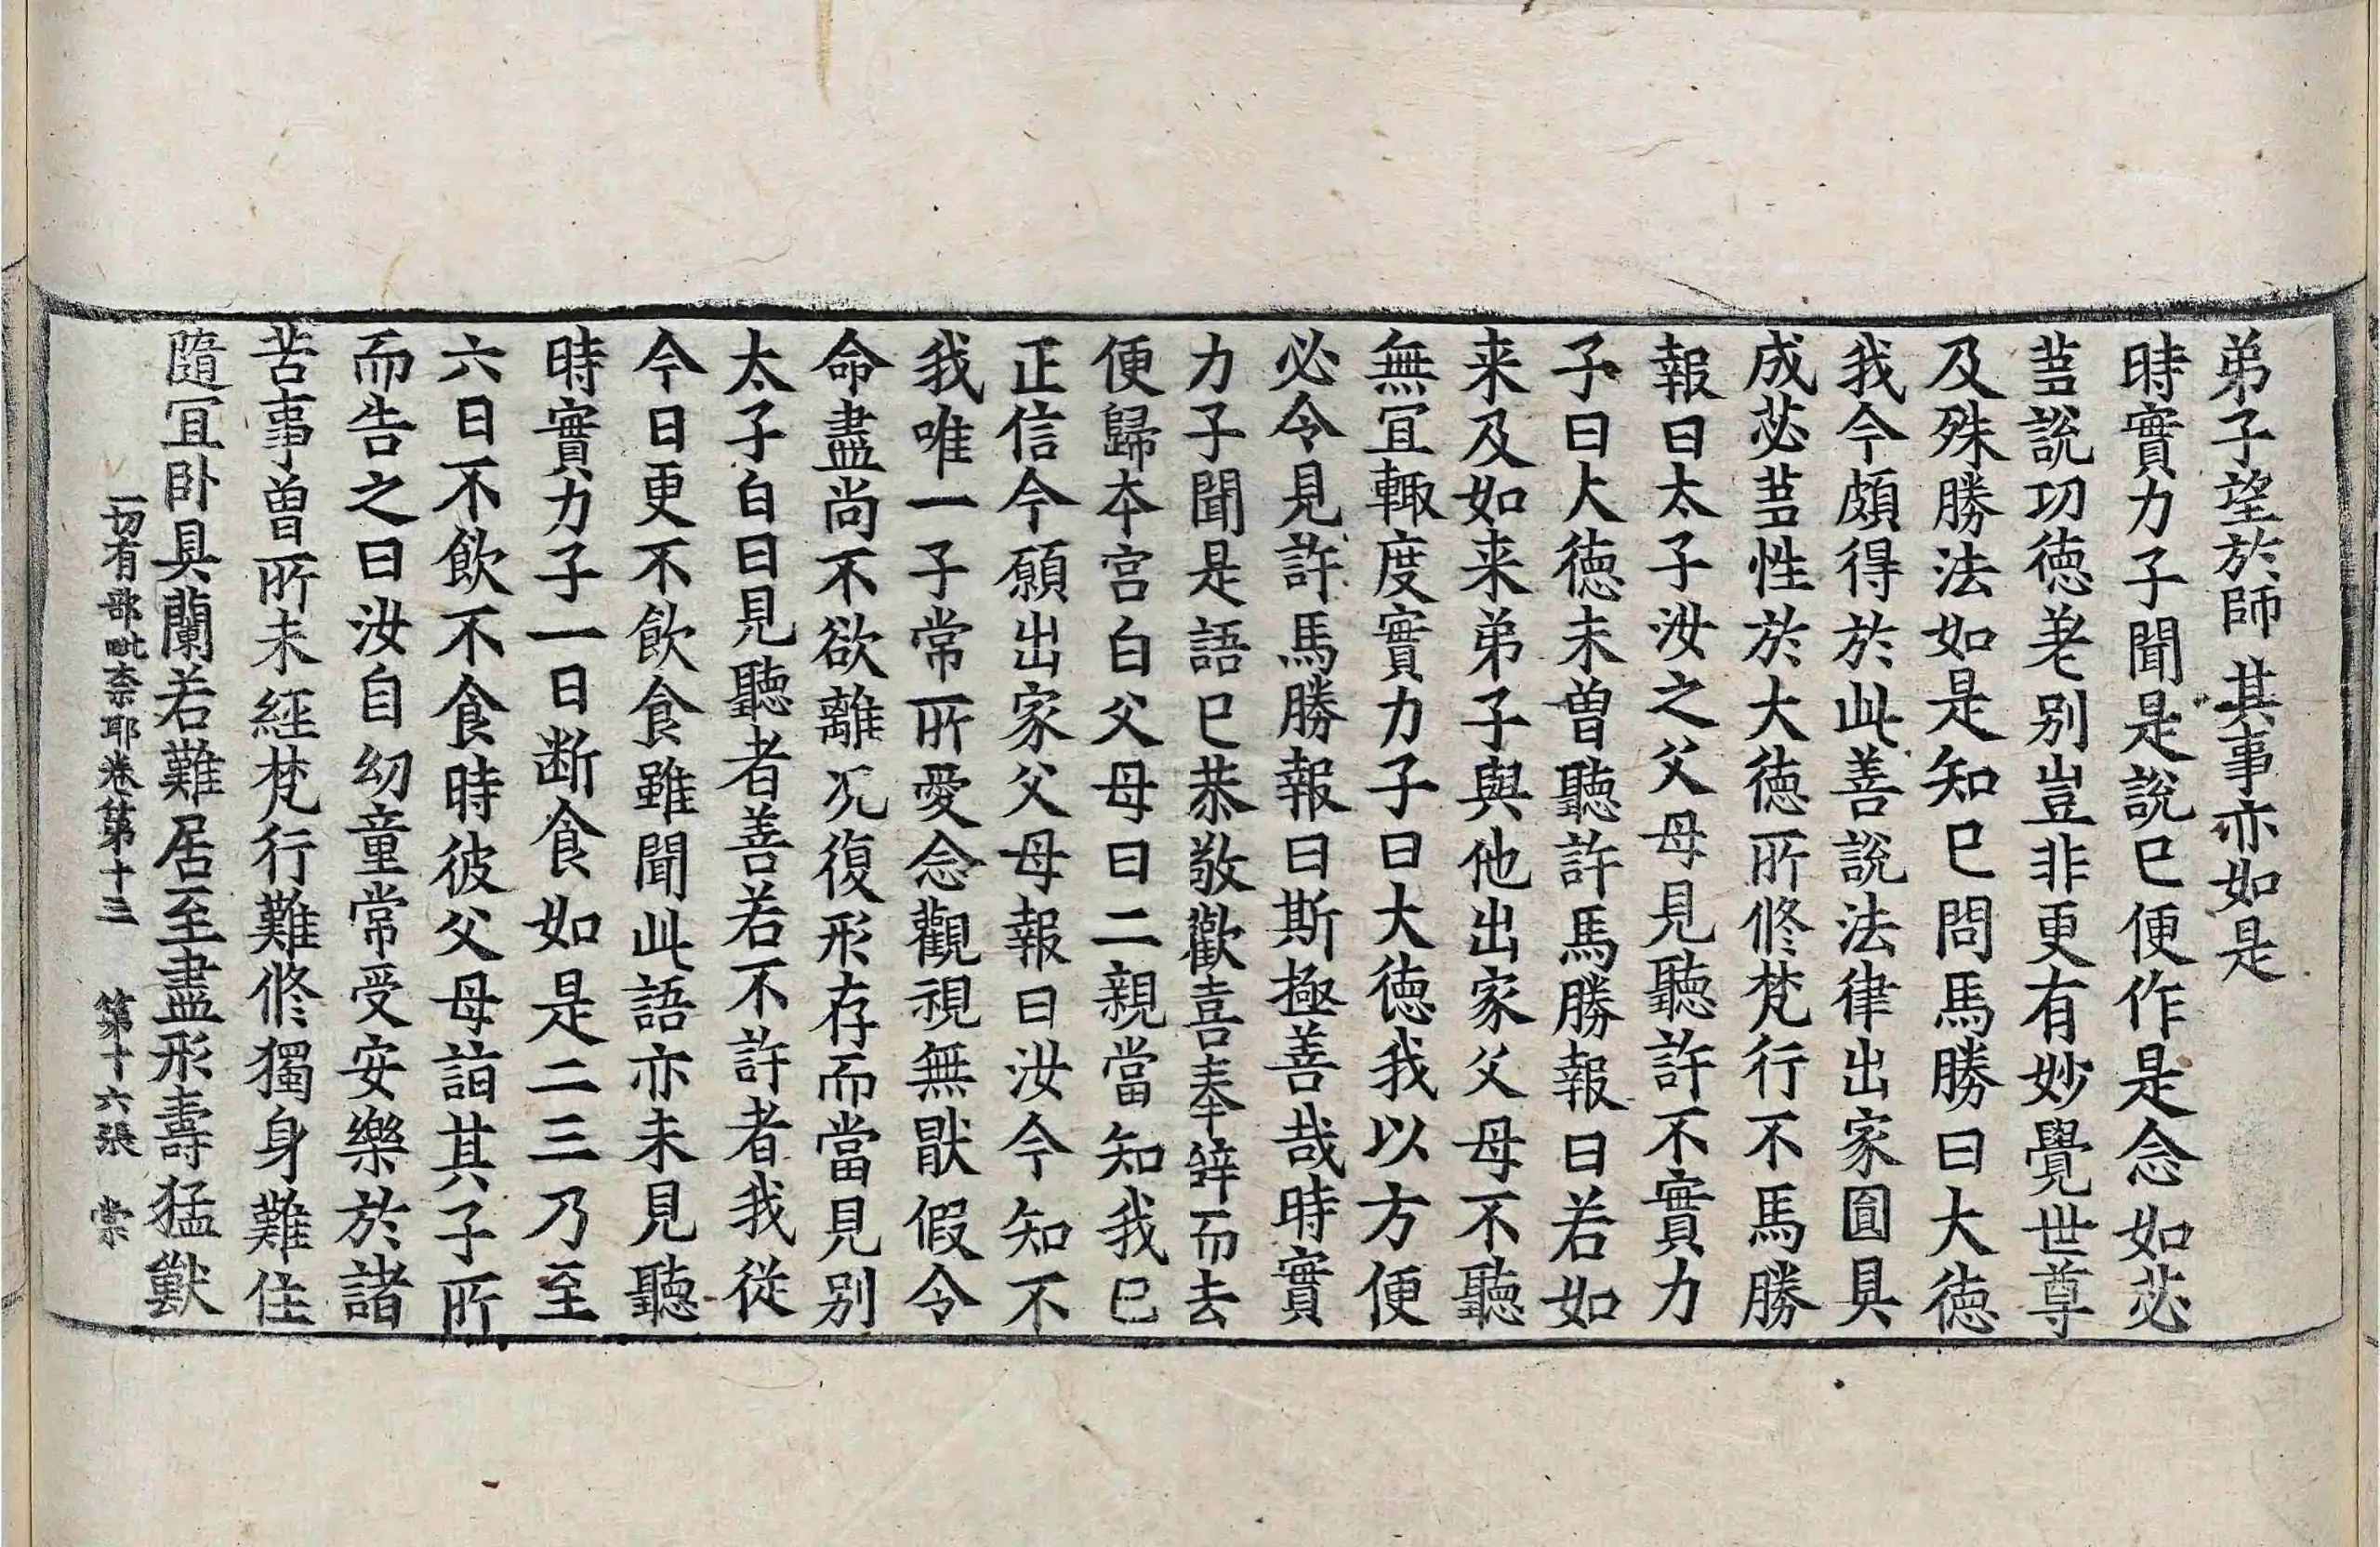 弟子望於師 其事亦如是
時實力子聞是說已便作是念如苾
蒭說功德差別豈非更有妙覺世尊
及殊勝法如是知已問馬勝曰大德
我今頗得於此善說法律出家圓具
成苾蒭性於大德所修梵行不馬勝
報曰太子汝之父母見聽許不實力
子曰大德未曾聽許馬勝報曰若如
来及如来弟子與他出家父母不聽
無宜輙度實力子曰大德我以方便
必令見許馬勝報曰斯極善哉時實
力子聞是語已恭敬歡喜奉辭而去
便歸本宮白父母曰二親當知我已
正信今願出家父母報曰汝今知不
我唯一子常所愛念觀視無猒假令
命盡尚不欲離况復形存而當見別
太子白曰見聽者善若不許者我從
今日更不飲食雖聞此語亦未見聽
時實力子一日断食如是二三乃至
六日不飲不食時彼父母詣其子所
而告之曰汝自幼童常受安樂於諸
苦事曾所未經梵行難修獨身難住
隨宜卧具蘭若難居至盡形壽猛獸
一切有部毗奈耶卷第十三 第十六張 棠